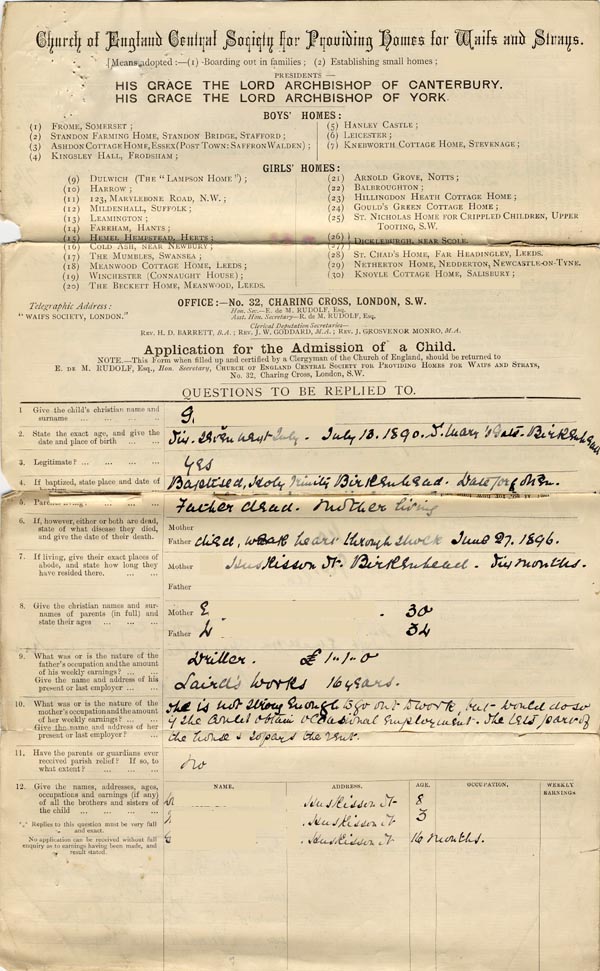 Church of England Central Society for Providing Homes for Waifs and Strays.
[Means adopted :—(1) Boarding out in families; (2) Establishing small homes;
PRESIDENTS —
HIS GRACE THE LORD ARCHBISHOP OF CANTERBURY.
HIS GRACE THE LORD ARCHBISHOP OF YORK
BOYS' HOMES:
(1) FROME, SOMERSET;
(2) STANDON FARMING HOME, STANDON BRIDGE, STAFFORD;
(3) ASHDON COTTAGE HOME, ESSEX (POST TOWN: SAFFRON WALDEN);
(4) KINGSLEY HALL, FRODSHAM;
(5) HANLEY CASTLE;
(6) LEICESTER;
(7) KNEBWORTH COTTAGE HOME, STEVENAGE;
GIRLS' HOMES:
(9) DULWICH (THE "LAMPSON HOME");
(10) HARROW;
(11) 123, MARYLEBONE ROAD, N.W.;
(12) MILDENHALL, SUFFOLK;
(13) LEAMINGTON;
(14) FAREHAM, HANTS;
(15) HEMEL HEMPSTEAD, HERTS;
(16) COLD ASH, NEAR NEWBURY;
(17) THE MUMBLES, SWANSEA;
(18) MEANWOOD COTTAGE HOME, LEEDS;
(19) WINCHESTER (CONNAUGHT HOUSE);
(20) THE BECKETT HOME, MEANWOOD, LEEDS.
(21) ARNOLD GROVE, NOTTS;
(22) BALBROUGHTON;
(23) HILLINGDON HEATH COTTAGE HOME;
(24) GOULD'S GREEN COTTAGE HOME;
(25) ST. NICHOLAS HOME FOR CRIPPLED CHILDREN, UPPER
TOOTING, S.W.
(26)
(27) DICKLEBURGH, NEAR SCOLE.
(28) ST. CHAD'S HOME, FAR HEADINGLEY, LEEDS.
(29) NETHERTON HOME, NEDDERTON, NEWCASTLE-ON-TYNE.
(30) KNOYLE COTTAGE HOME, SALISBURY;
Telegraphic Address:
"WAIFS SOCIETY, LONDON."
OFFICE:—No. 32, CHARING CROSS, LONDON, S.W.
Hon. Sec.—E. de M. RUDOLF, Esq.
Asst. Hon. Secretary—R. de M. RUDOLF, Esq.
Clerical Deputation Secretaries—
REV. H. D. BARRETT, B.A.; REV. J. W. GODDARD, M.A.; REV. J. GROSVENOR MONRO, M.A.
Application for the Admission of a Child.
NOTE.—This Form when filled up and certified by a Clergyman of the Church of England, should be returned to
E. DE M. RUDOLF, Esq., Hon. Secretary, CHURCH OF ENGLAND CENTRAL SOCIETY FOR PROVIDING HOMES FOR WAIFS AND STRAYS,
No. 32, Charing Cross, London, S.W.
QUESTIONS TO BE REPLIED TO.
1 Give the child's christian name and
surname
G.
2. State the exact age, and give the
date and place of birth
Six. Seven next July. July 13. 1890. St Mary's Gate. Birkenhead
3. Legitimate?
Yes
4. If baptized, state place and date of
Baptised, Holy Trinity Birkenhead. Date forgotten.
5. Parents living?
Father dead. Mother living
6. If, however, either or both are dead,
state of what disease they died,
and give the date of their death.
Mother
Father died, weak heart through shock June 27. 1896.
7. If living, give their exact places of
abode, and state how long they
have resided there.
Mother Huskisson St. Birkenhead. Six months.
Father
8. Give the christian names and sur-
names of parents (in full) and
state their ages
Mother E. 30
Father W 34
9. What was or is the nature of the
father's occupation and the amount
of his weekly earnings?
Give the name and address of his
present or last employer
Driller. £1-1-0
Laird's works 16 years.
10. What was or is the nature of the
mother's occupation and the amount
of her weekly earnings?
Give the name and address of her
present or last employer?
She is not strong enough to go out to work, but would do so
if she could obtain occasional employment. She lets part of
the house & so pays the rent.
11. Have the parents or guardians ever
received parish relief? If so, to
what extent?
no
12. Give the names, addresses, ages,
occupations and earnings (if any)
of all the brothers and sisters of
the child
Replies to this question must be very full
and exact.
No application can be received without full
enquiry as to earnings having been made, and
result stated.
NAME. ADDRESS. AGE. OCCUPATION, WEEKLY EARNINGS
Huskisson St 8
Huskisson St 3
Huskisson St 16 months.